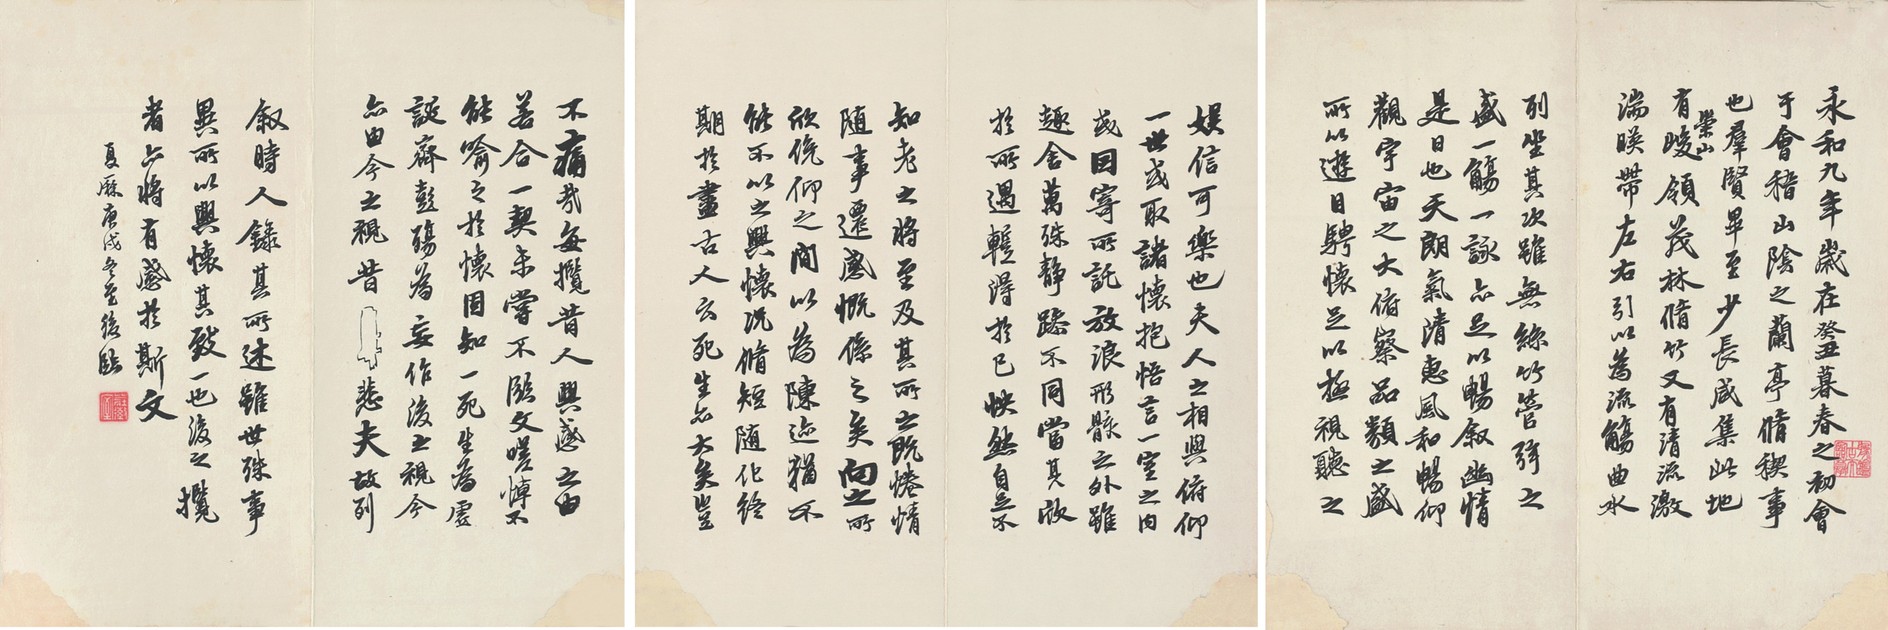 永和九年歲在癸丑暮春之初會
于會稽山陰之蘭亭脩稧事
也羣賢畢至少長咸集此地
有崇山峻領茂林脩竹又有清流激
湍暎帶左右引以為流觴曲水
列坐其次雖無絲竹管弦之
盛一觴一詠亦足以暢叙幽情
是日也天朗氣清惠風和暢仰
觀宇宙之大俯察品類之盛
所以遊目騁懷足以極視聽之
娛信可樂也夫人之相與俯仰
一世或取諸懷抱悟言一室之內
或因寄所託放浪形骸之外雖
趣舍萬殊靜躁不同當其欣
於所遇蹔得於己怏然自足不
知老之將至及其所之既惓情
随事遷感慨係之矣向之所
欣俛仰之間以為陳迹猶不
能不以之興懷況脩短随化終
期於盡古人云死生亦大矣豈
不痛哉每攬昔人興感之由
若合一契未嘗不臨文嗟悼不
能喻之於懷固知一死生為虛
誕齊彭殤為妄作後之視今
亦由今之視昔悲夫故列
叙時人錄其所述雖世殊事
異所以興懷其致一也後之攬
者亦將有感於斯文
夏曆庚戌冬至後臨